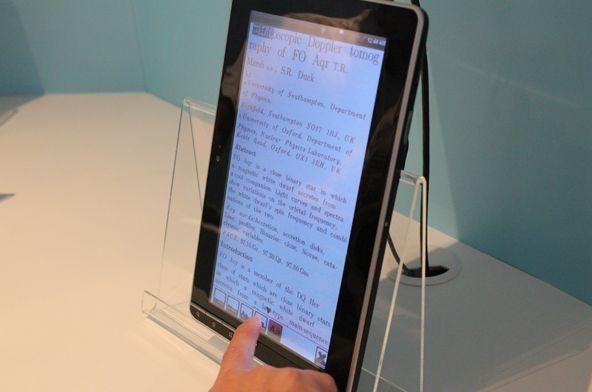 ecopic Doppler tomog
raphy of FO Aqr T.R.
Marsh a,*, S.R. Duck
a University of Southampton, Department
of Physics,
Highfield, Southampton SO17 1BJ, UK
University of Oxford, Department of
Physics, Nuclear Physics Laboratory,
Keble Road, Oxford, OX1 3RH, UK
Abstract
FO Aqr is a close binary star in which
a magnetic white dwarf accretes from
a cool companion. Light curves and spectra
show variations on the orbital frequency,
the white dwarf's spin frequency and combi
nations of the two.
Key words: Accretion, accretion disks,
line: profiles, Binaries: close, Novae, cata
clysmic variables
PACS: 97.10.Gz, 97.30.Qt, 97.80.Gm
Introduction
FO Aqr is a member of the DQ Her
class of stars which are close binary stars
in which a magnetic white dwarf
accretes from a type main-sequence